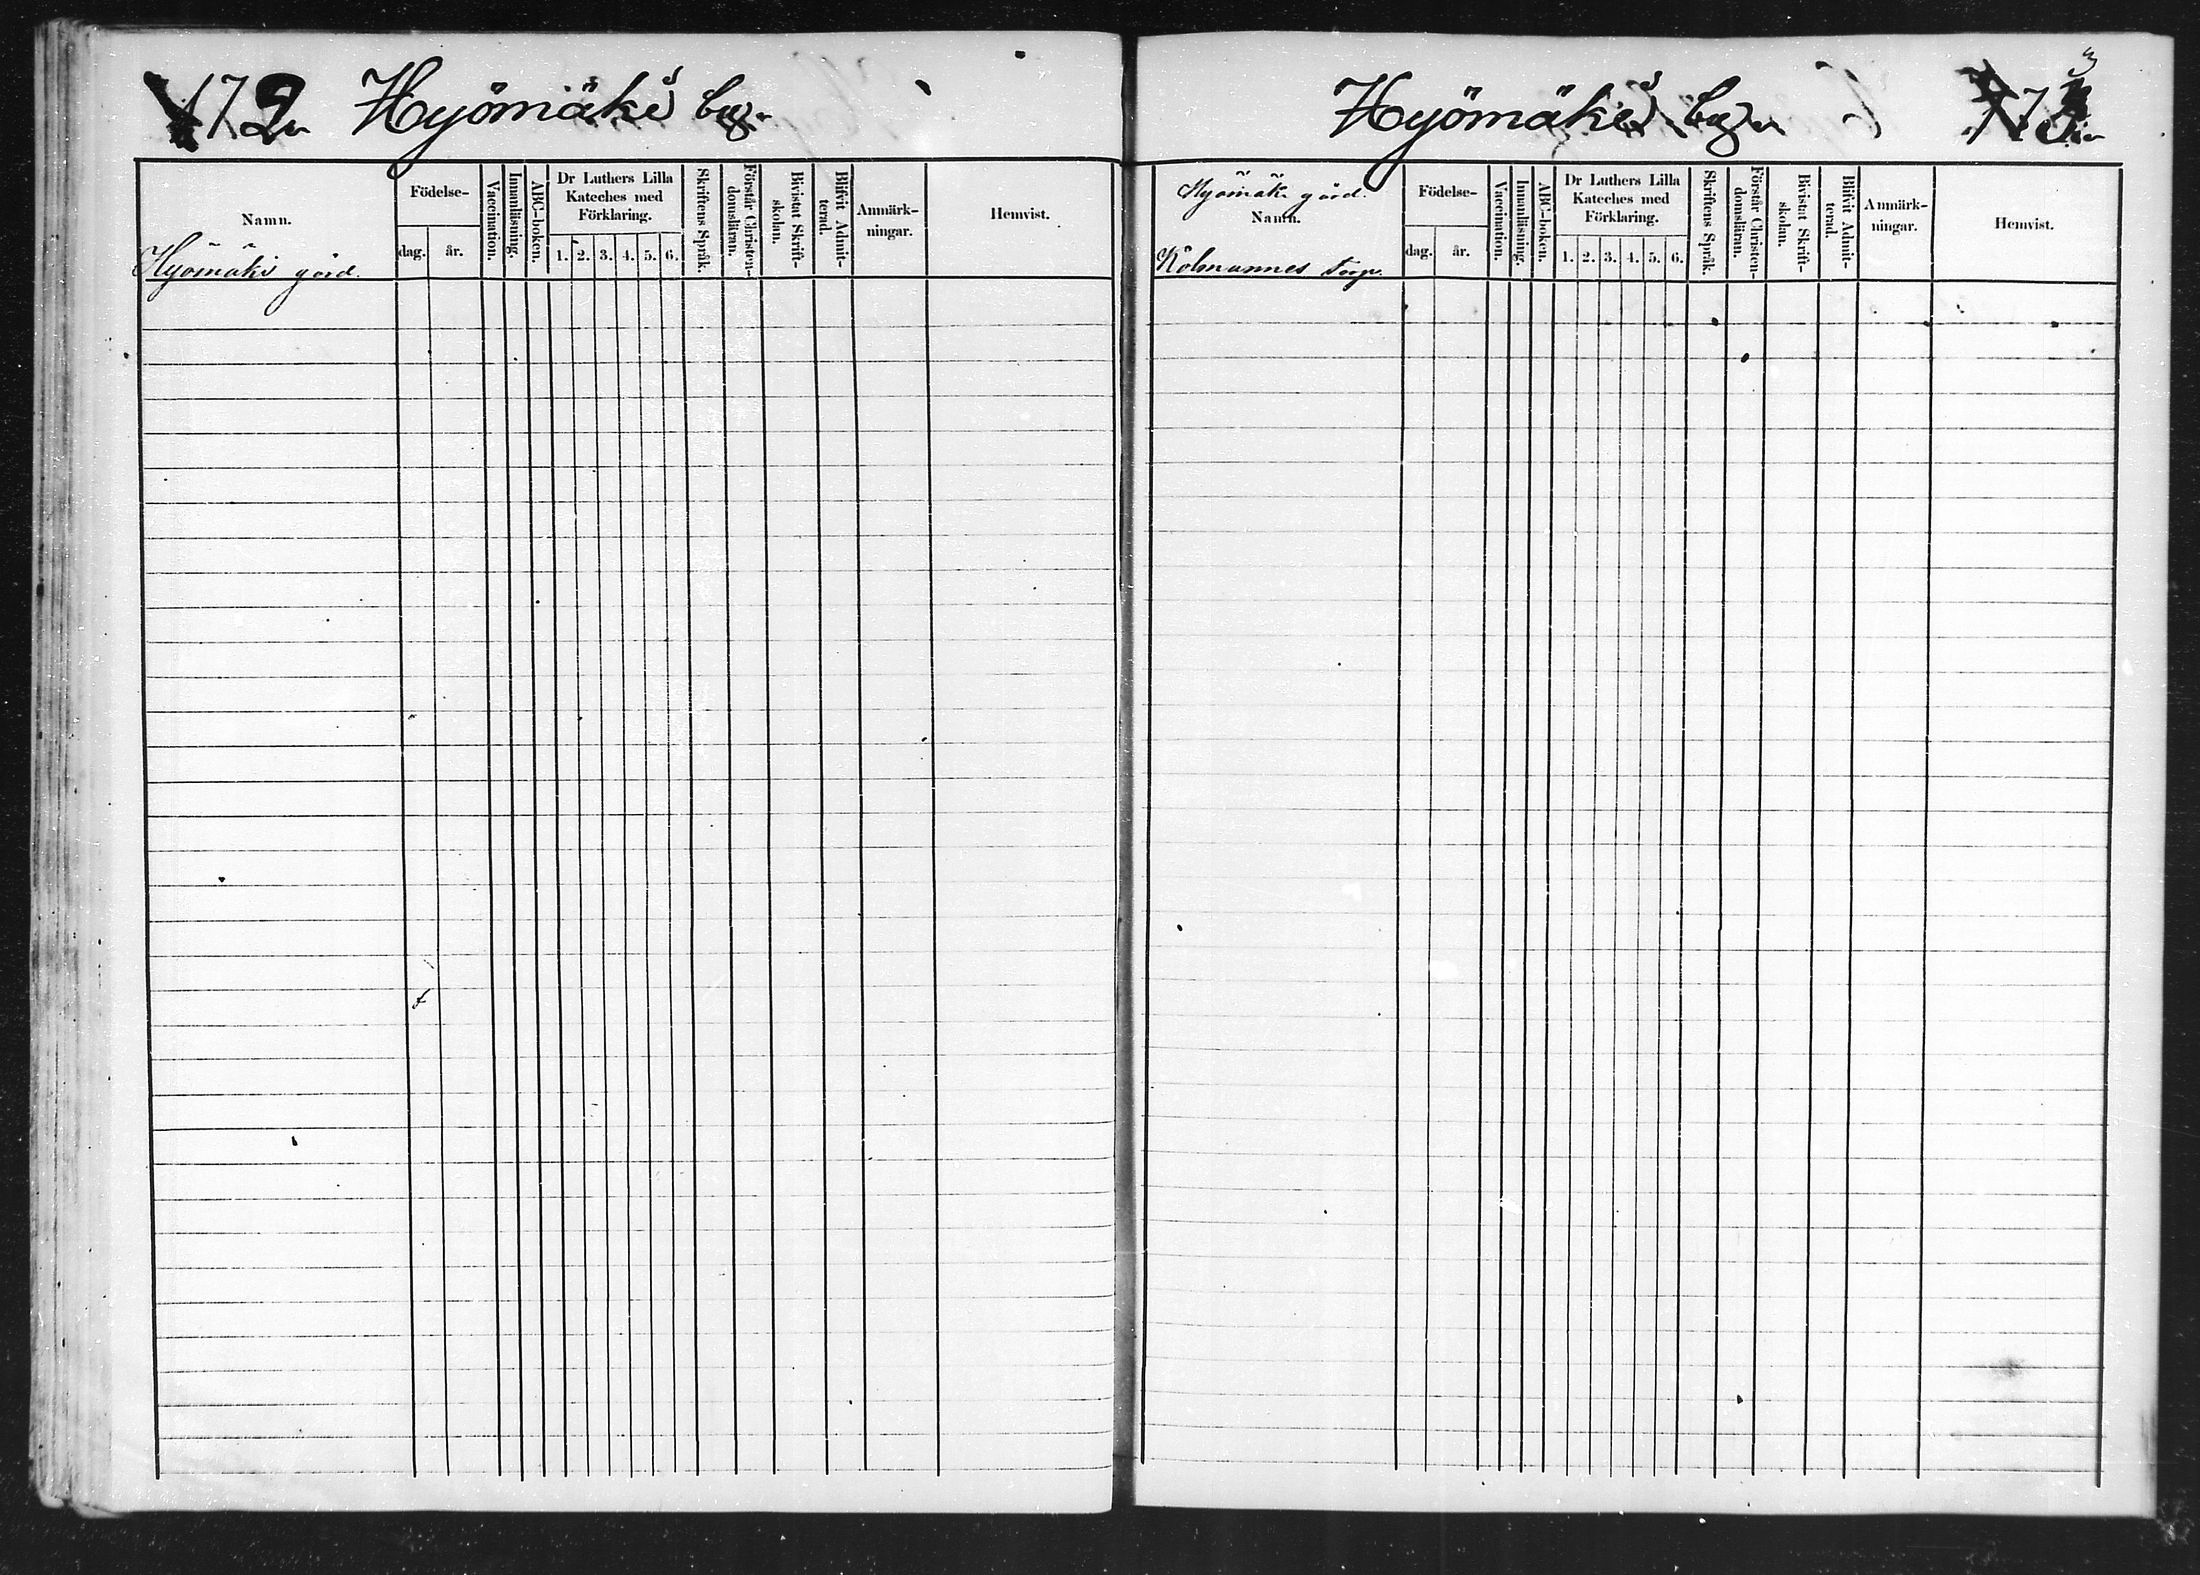 172. Hyömäki s by.
Namn.
Hyömäki gård.
Födelse-
dag. år.
Vaccination.
Innanläsning.
ABC-boken.
Dr Luthers Lilla
Kateches med
Förklaring.
1. 2. 3. 4. 5. 6.
Skriftens Språk.
Förstår Christen-
domsläran.
Bivistat Skrift-
skolan.
Blifvit Admit-
terad.
Anmärk-
ningar.
Hemvist.
Hyömäki s by. 173
Hyömäki gård.
Namn.
Kölmännes torp.
Födelse-
dag. år.
Vaccination.
Innanläsning.
ABC-boken.
Dr Luthers Lilla
Kateches med
Förklaring.
1. 2. 3. 4. 5. 6.
Skriftens Språk.
Förstår Christen-
domsläran.
Bivistat Skrift-
skolan.
Blifvit Admit-
terad.
Anmärk-
ningar.
Hemvist.